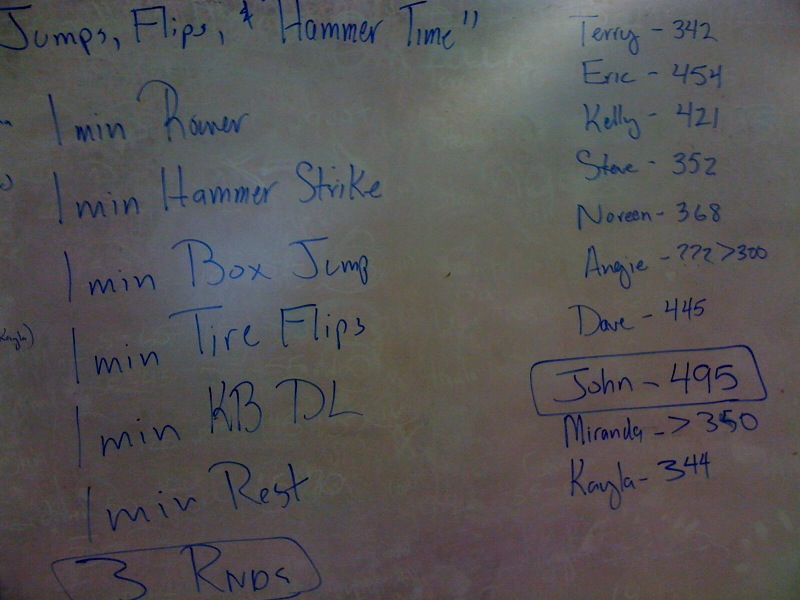 Jumps, Flips, & "Hammer Time"
1 min Rower
1 min Hammer Strike
1 min Box Jump
1 min Tire Flips
1 min KB DL
1 min Rest
3 RNDS
Terry - 342
Eric - 454
Kelly - 421
Steve - 352
Noreen - 368
Angie - ??? >300
Dave - 445
John - 495
Miranda - > 350
Kayla - 344